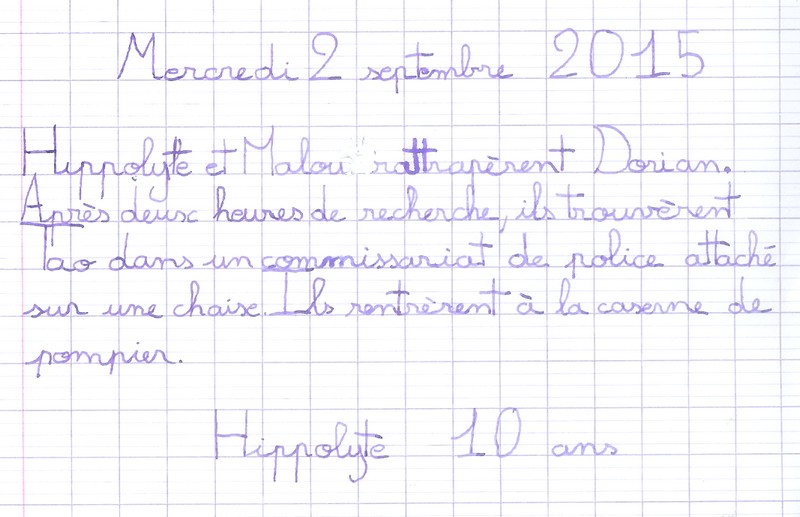 Mercredi 2 septembre 2015
Hippolyte et Malou rattrapèrent Dorian.
Après deux heures de recherche, ils trouvèrent
Tao dans un commissariat de police attaché
sur une chaise. Ils rentrèrent à la caserne de
pompier.
Hippolyte 10 ans